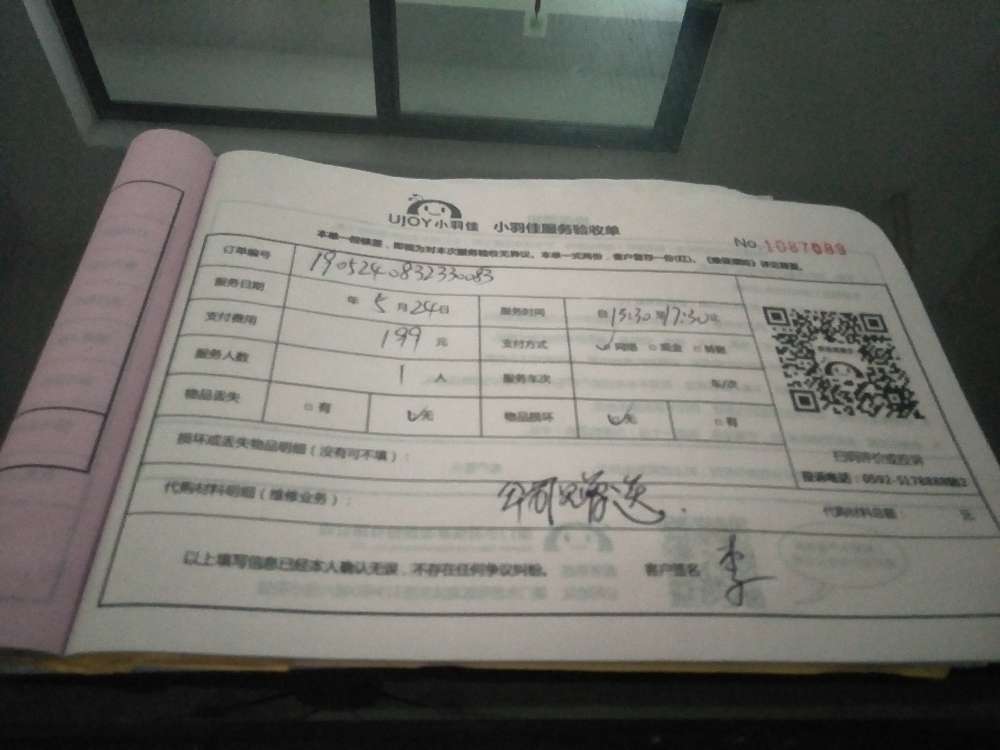 UJOY小羽佳 小羽佳服务验收单
No.1087089
本单一经核签，即视为对本次服务验收无异议。本单一式两份，客户留存一份(红)。
订单编号 1905240832330083
服务日期 年 5 月 24 日 服务时间 自 15:30 至 17:30 止
支付费用 199 元 支付方式 网络 现金 转账
服务人数 1 人 服务车次 车/次
物品丢失 有 无 物品损坏 无 有
损坏或丢失物品明细（没有可不填）：
扫码评价或投诉
投诉电话：0592-5178888
代购材料明细（维修业务）： 公司 赠送
代购材料总额 元
以上填写信息已经本人确认无误，不存在任何争议纠纷。 客户签名 李